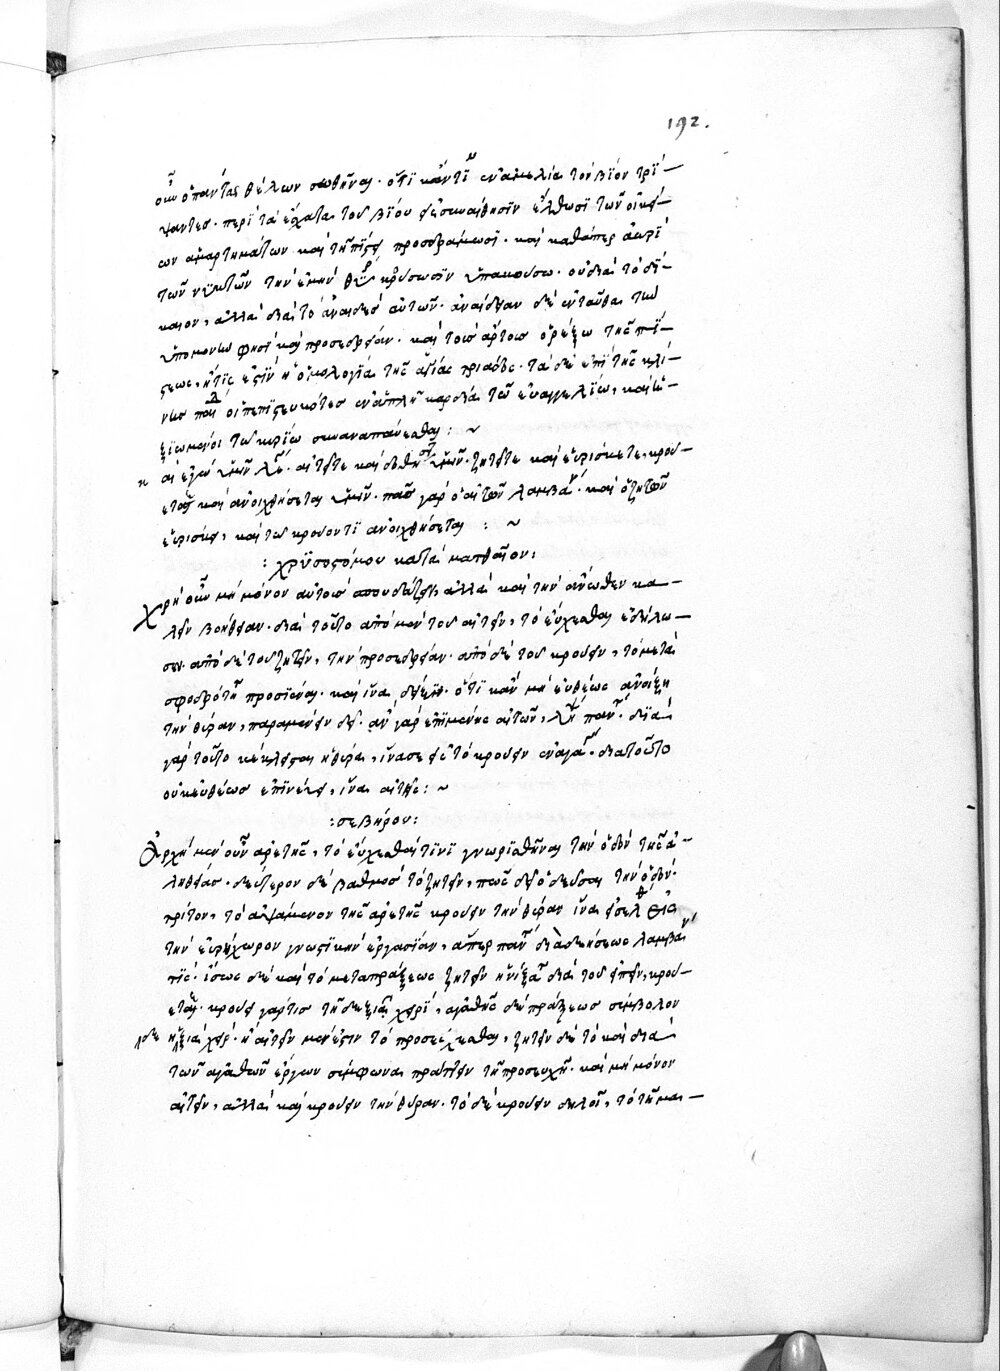 192.
οὖν ὁ πάντας θέλων σωθῆναι. ὅτι κἂν τῇ ἐν ἀμελίᾳ τὸν βίον τρί-
ψαντες. περὶ τὰ ἔσχατα τοῦ βίου εἰς συναίσθησιν ἔλθωσι τῶν οἰκεί-
ων ἁμαρτημάτων καὶ τῇ πίστει προσδράμωσι. καὶ καθάπερ ἀωρὶ
τῶν νυκτῶν τὴν ἐμὴν θύραν κρούσωσιν ὑπακούσω. οὐ διὰ τὸ δί-
καιον, ἀλλὰ διὰ τὸ ἀναιδὲς αὐτῶν. ἀναίδειαν δὲ ἐνταῦθα τὴν
ὑπομονὴν φησὶ καὶ προσεδρείαν. καὶ τοὺς ἄρτους ὀρέξω τῆς πί-
στεως, ἥτις ἐστὶν ἡ ὁμολογία τῆς ἁγίας τριάδος. τὰ δὲ ἐπὶ τῆς κλί-
νης οἱ πεπιστευκότες ἐν ἁπλῇ καρδίᾳ τῷ εὐαγγελίῳ, καὶ ἠ-
ξιωμένοι τῷ κυρίῳ συναναπαύεσθαι: ~
καὶ ἐγὼ ὑμῖν λέγω. αἰτεῖτε καὶ δοθήσεται ὑμῖν. ζητεῖτε καὶ εὑρίσκετε, κρού-
εται καὶ ἀνοιχθήσεται ὑμῖν. πᾶς γὰρ ὁ αἰτῶν λαμβάνει. καὶ ὁ ζητῶν
εὑρίσκει, καὶ τῷ κρούοντι ἀνοιχθήσεται: ~
: χρυσοστόμου κατὰ ματθαῖον:
Χρὴ οὖν μὴ μόνον αὐτοὺς σπουδάζειν, ἀλλὰ καὶ τὴν ἄνωθεν κα-
λεῖν βοήθειαν. διὰ τοῦτο ἀπὸ μὲν τοῦ αἰτεῖν, τὸ εὔχεσθαι ἐδήλω-
σεν. ἀπὸ δὲ τοῦ ζητεῖν, τὴν προσεδρείαν. ἀπὸ δὲ τοῦ κρούειν, τὸ μετὰ
σφοδρότητος προσιέναι. καὶ ἵνα δείξῃ. ὅτι κἂν μὴ εὐθέως ἀνοίξῃ
τὴν θύραν, παραμένειν δεῖ. ἂν γὰρ ἐπιμένῃς αἰτῶν, λήψῃ πάντως. διὰ
γὰρ τοῦτο κέκλεισται ἡ θύρα, ἵνα σε εἰς τὸ κρούειν ἐναγάγῃ. διατοῦτο
οὐκ εὐθέως ἐπινεύει, ἵνα αἰτῇς: ~
:σεβήρου:
Ἀρχὴ μὲν οὖν ἀρετῆς, τὸ εὔχεσθαί τινι γνωρισθῆναι τὴν ὁδὸν τῆς ἀ-
ληθείας. δεύτερον δὲ βαθμὸς τὸ ζητεῖν, πῶς δεῖ ὁδεῦσαι τὴν ὁδόν.
τρίτον, τὸ ἁψάμενον τῆς ἀρετῆς κρούειν τὴν θύραν ἵνα εἰσέλθῃ εἰς
τὴν εὐρύχωρον γνωστικὴν ἐργασίαν, ἅπερ πάντα διὰ δεήσεως λαμβάνει
τίς. ἴσως δὲ καὶ τὸ μετὰ πράξεως ζητεῖν ᾐνίξατο διὰ τοῦ εἰπεῖν, κρού-
εται. κρούει γάρ τις τῇ δεξιᾷ χειρὶ, ἀγαθῆς δὲ πράξεως σύμβολον
ἡ δεξιὰ χείρ. ἢ αἰτεῖν μέν ἐστιν τὸ προσεύχεσθαι, ζητεῖν δὲ τὸ καὶ διὰ
τῶν ἀγαθῶν ἔργων σύμφωνα πράττειν τῇ προσευχῇ. καὶ μὴ μόνον
αἰτεῖν, ἀλλὰ καὶ κρούειν τὴν θύραν. τὸ δὲ κρούειν δηλοῖ, τὸ τῇ μα-